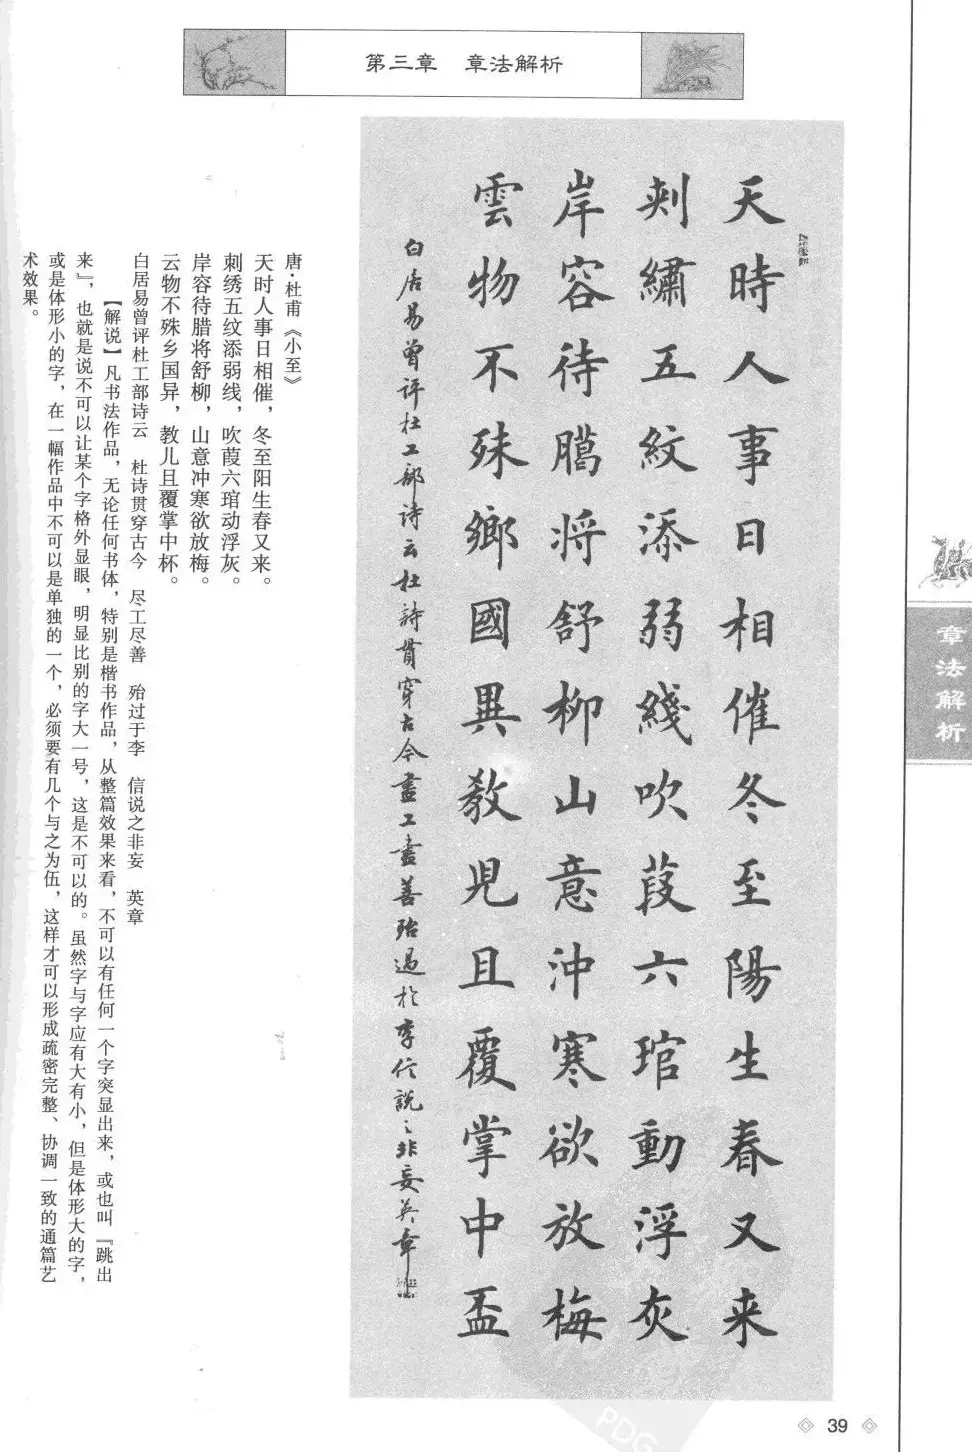 第三章 章法解析
天時人事日相催冬至陽生春又来
刾繡五紋添弱綫吹葭六琯動浮灰
岸容待臈将舒柳山意沖寒欲放梅
雲物不殊鄉國異教児且覆掌中盃
白居易曾评杜工部诗云杜詩貫穿古今盡工盡善殆過於李信説之非妄英章
唐·杜甫《小至》
天时人事日相催，冬至阳生春又来。
刺绣五纹添弱线，吹葭六琯动浮灰。
岸容待腊将舒柳，山意冲寒欲放梅。
云物不殊乡国异，教儿且覆掌中杯。
白居易曾评杜工部诗云 杜诗贯穿古今 尽工尽善 殆过于李 信说之非妄 英章
【解说】凡书法作品，无论任何书体，特别是楷书作品，从整篇效果来看，不可以有任何一个字突显出来，或也叫『跳出
来』，也就是说不可以让某个字格外显眼，明显比别的字大一号，这是不可以的。虽然字与字应有大有小，但是体形大的字，
或是体形小的字，在一幅作品中不可以是单独的一个，必须要有几个与之为伍，这样才可以形成疏密完整、协调一致的通篇艺
术效果。
章法解析
39
PDG